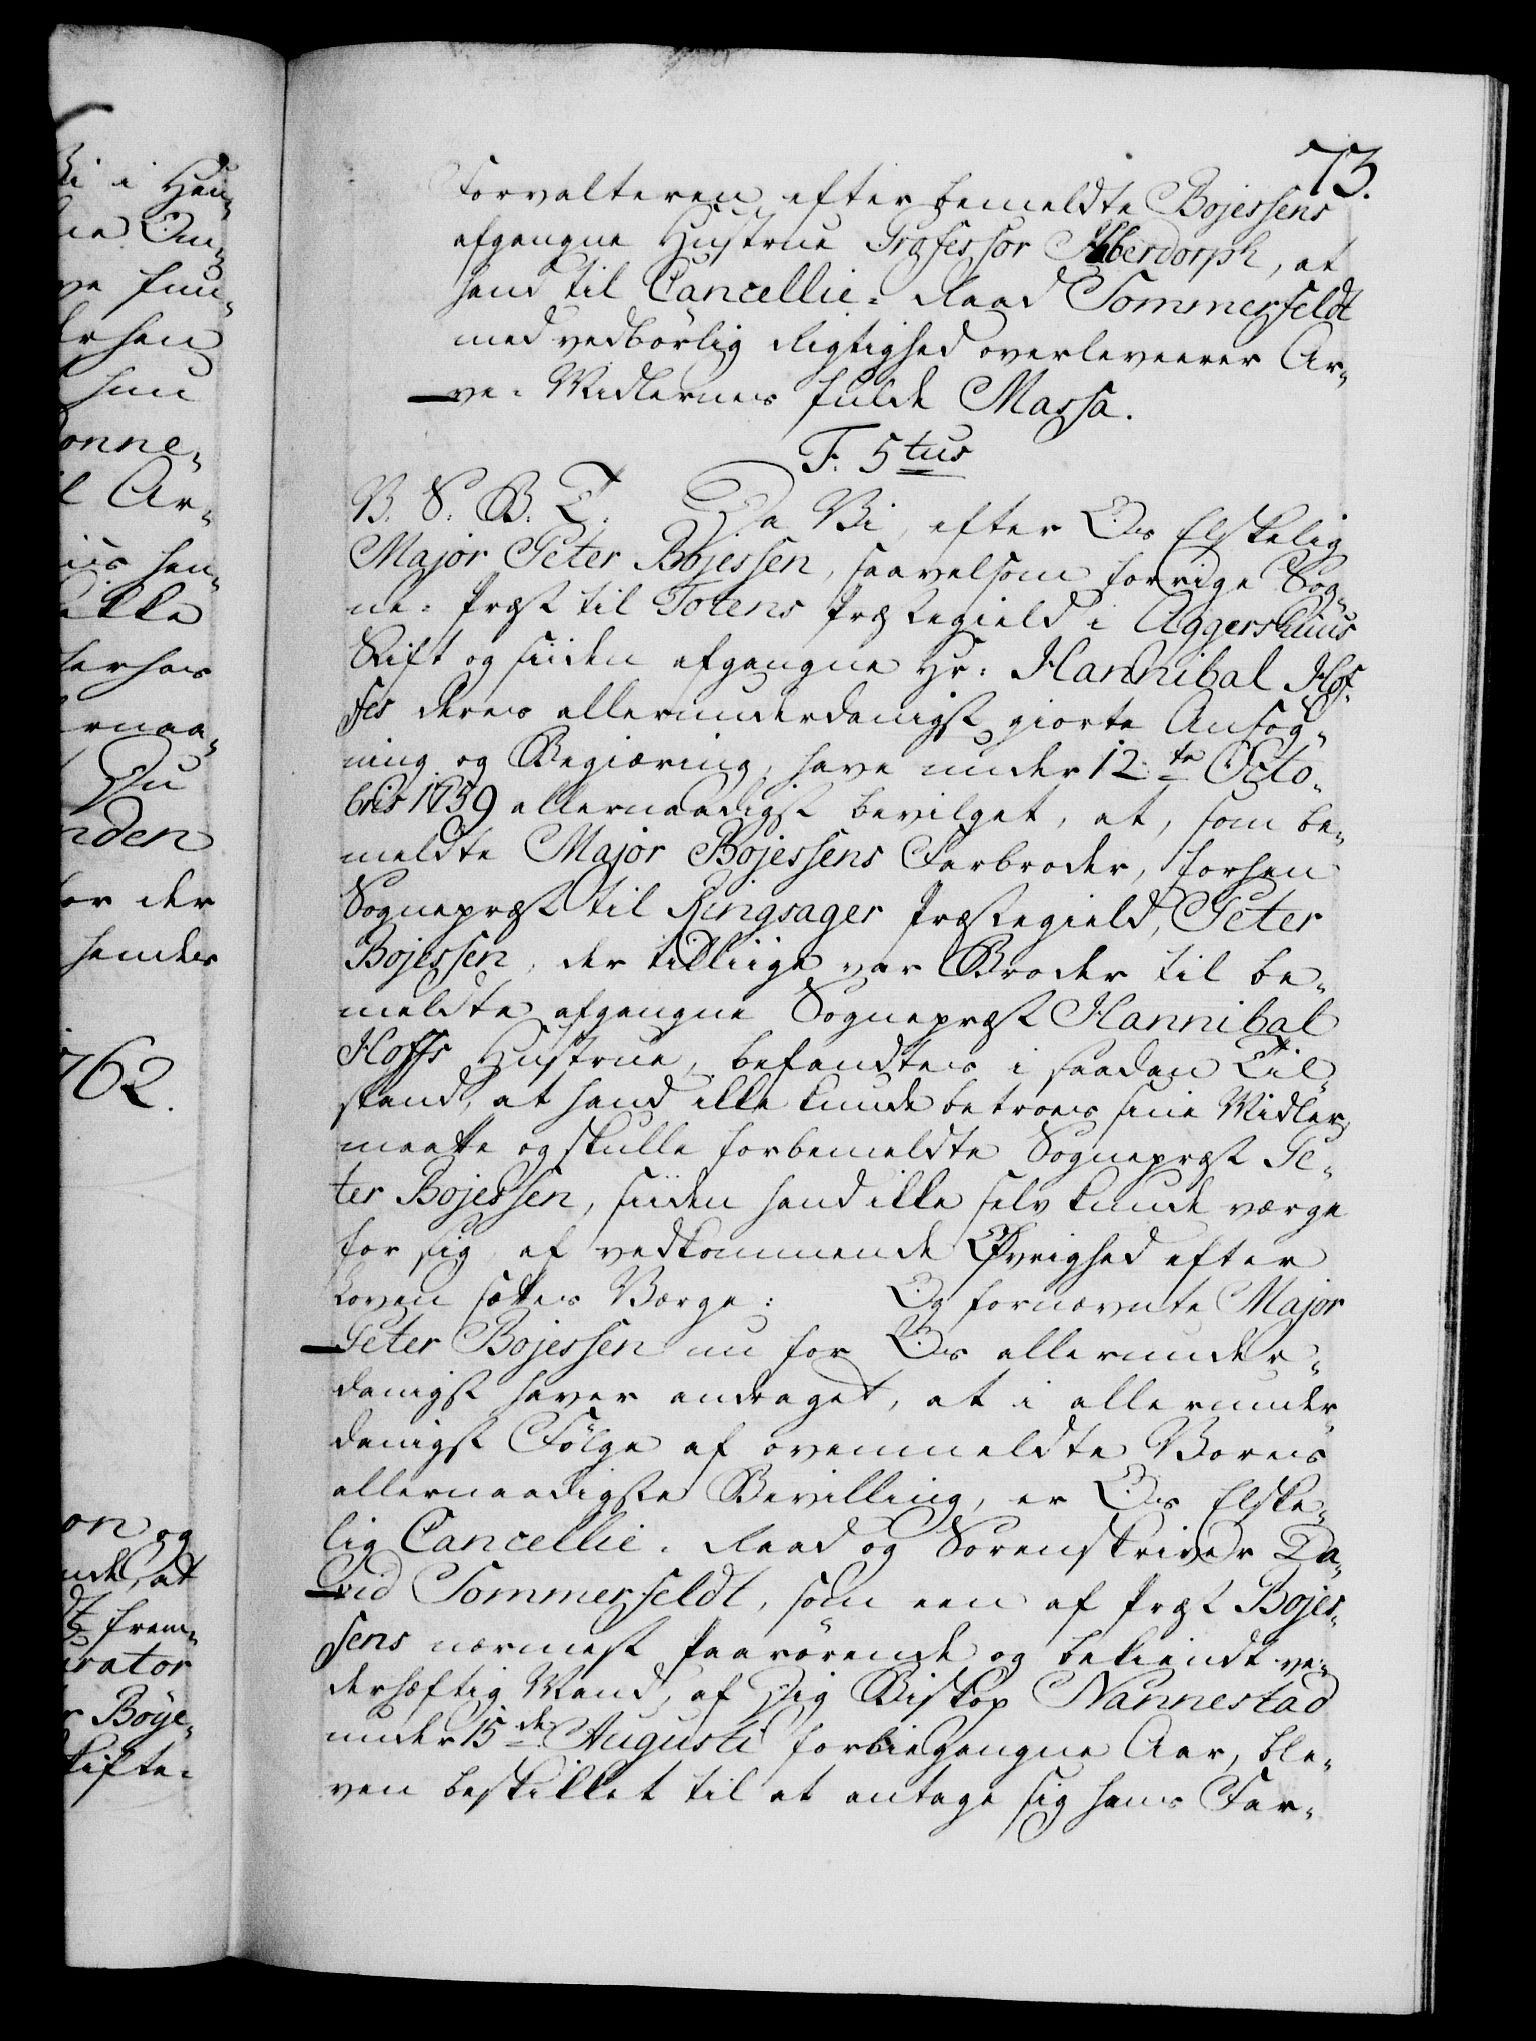 73.
Forvalteren efter bemeldte Bojessens
afgangne Hustrue Professor Abberdorph, at
hand til Cancellie-Raad Sommerfeldt
med vedbørlig Rigtighed overleverer Ar-
ve-Midlernes fulde Massa.
F. 5tus
V. S. B. T. Da Vi, efter Os Elskelig
Major Peter Bojessen, saavelsom forrige Sog-
ne-Præst til Totens Præstegield i Aggershuus
Stift og siiden afgangne Hr. Hannibal Hof-
fes deres allerunderdanigst giorte Ansøg-
ning og Begiæring, have under 12te Octo-
bris 1759 allernaadigst bevilget, at, som be-
meldte Major Bojessens Farbroder, forhen
Sognepræst til Ringsager Præstegield, Peter
Bojessen, der tilliige var Broder til be-
meldte afgangne Sognepræst Hannibal
Hoffs Hustrue, befandtes i saadan Til-
stand, at hand ikke kunde betroes sine Midler,
maatte og skulle forbemeldte Sognepræst Pe-
ter Bojessen, siiden hand ikke selv kunde værge
for sig, af vedkommende Øvrighed efter
Loven sættes Værge: Og fornævnte Major
Peter Bojessen nu for Os allerunder-
danigst haver andraget, at i allerunder-
danigst Følge af ovenmeldte Vores
allernaadigste Bevilling, er Os Elske-
lig Cancellie-Raad og Sorenskriver Da-
vid Sommerfeldt, som een af Præst Bojes-
sens nærmest Paarørende og bekiendt ve-
derhæftig Mand, af Dig Biskop Nannestad
under 15de Augusti forbiegangne Aar, ble-
ven beskikket til at antage sig hans Far-